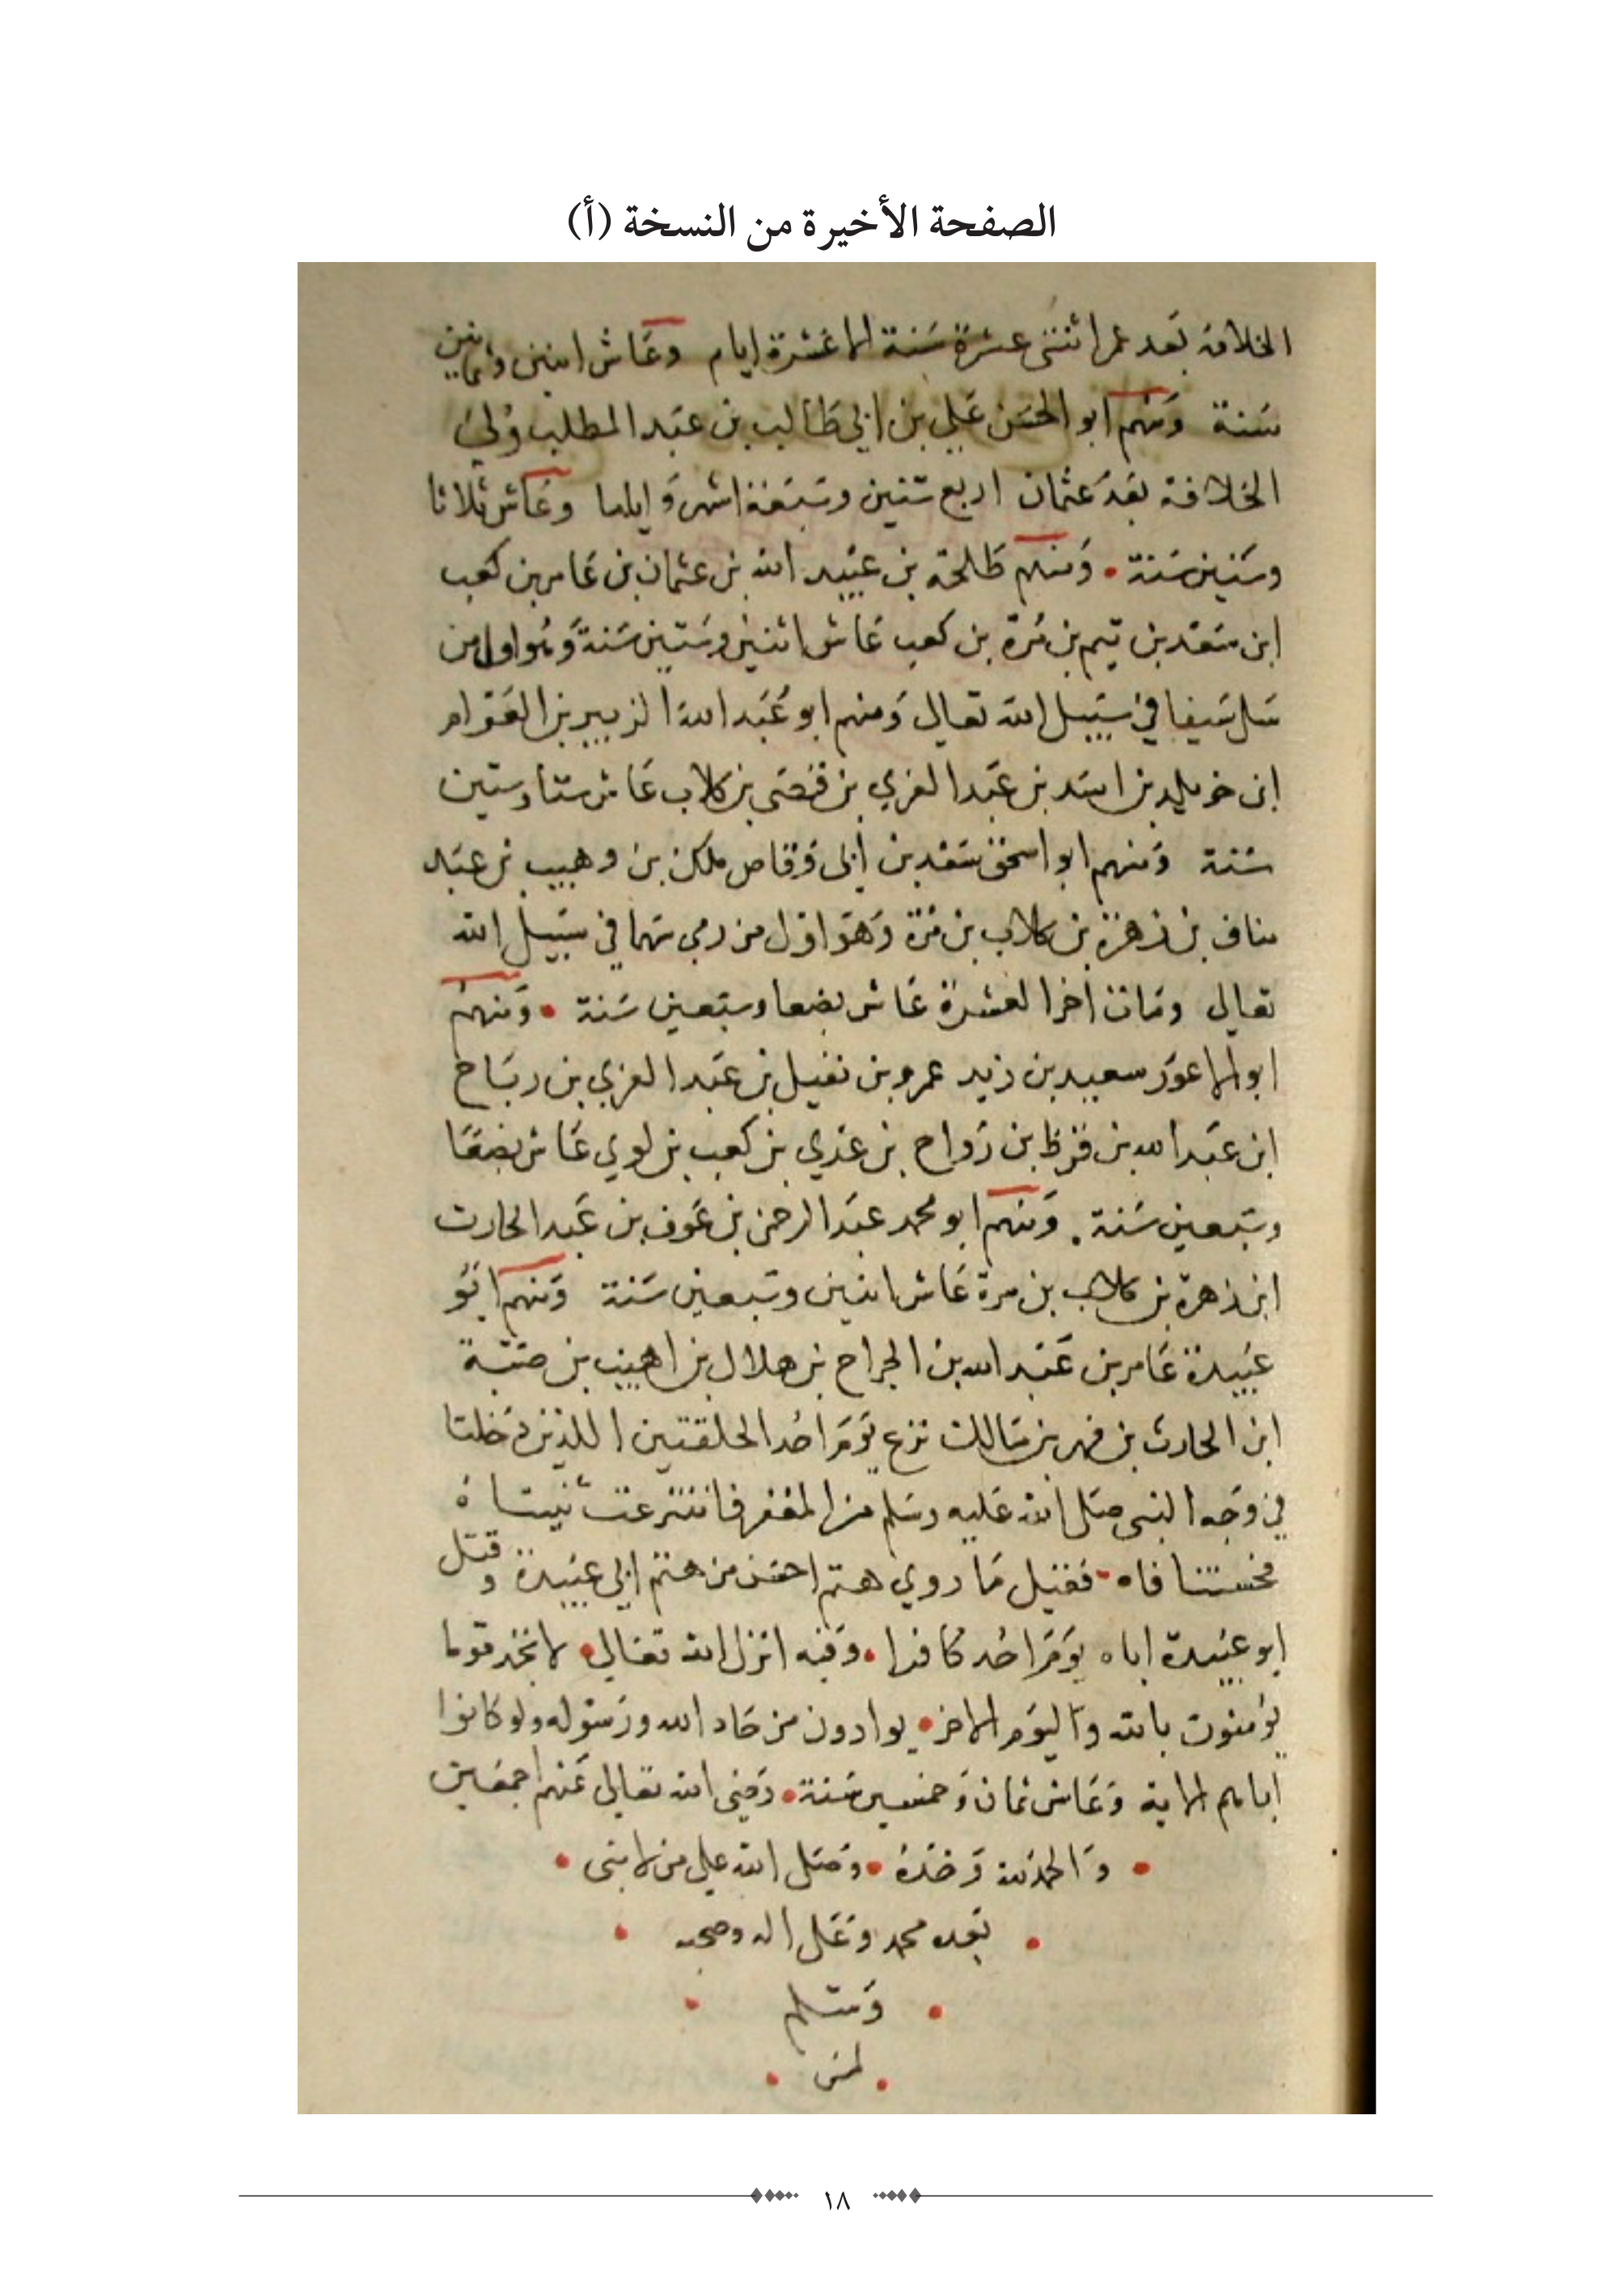 الصفحة الأخيرة من النسخة (أ)
الخلافة بعد عمر اثنتى عشرة سنة الا عشرة ايام وعاش اثنين وثمانين
سنة ومنهم ابو الحسن علي بن ابي طالب بن عبد المطلب ولي
الخلافة بعد عثمان اربع سنين وسبعة اشهر واياما وعاش ثلاثا
وستين سنة ومنهم طلحة بن عبيد الله بن عثمان بن عامر بن كعب
ابن سعد بن تيم بن مرة بن كعب عاش اثنين وستين سنة وهو اول من
سل سيفا في سبيل الله تعالى ومنهم ابو عبد الله الزبير بن العوام
ابن خويلد بن اسد بن عبد العزي بن قصى بن كلاب عاش ستا وستين
سنة ومنهم ابو اسحق سعد بن ابى وقاص ملك بن وهيب بن عبد
مناف بن زهرة بن كلاب بن مرة وهو اول من رمى سهما في سبيل الله
تعالى ومات اخر العشرة عاش بضعا وسبعين سنة ومنهم
ابو الاعور سعيد بن زيد عمرو بن نفيل بن عبد العزي بن رباح
ابن عبد الله بن قرظ بن رواح بن عدي بن كعب بن لوي عاش بضعا
وسبعين سنة ومنهم ابو محمد عبد الرحمن بن عوف بن عبد الحارث
ابن زهرة بن كلاب بن مرة عاش اثنين وسبعين سنة ومنهم ابو
عبيدة عامر بن عبد الله بن الجراح بن هلال بن اهيب بن ضبة
ابن الحارث بن فهر بن مالك نزع يوم احد الحلقتين اللذين دخلتا
في وجه النبى صلى الله عليه وسلم من المغفر فانتزعت ثنيتاه
فحسنتا فاه فقيل ما روي هتم احسن من هتم ابي عبيدة وقتل
ابو عبيدة اباه يوم احد كافرا وفيه انزل الله تعالى لا تجد قوما
يومنون بالله واليوم الاخر يوادون من حاد الله ورسوله ولو كانوا
اباءهم الاية وعاش ثمان وخمسين سنة رضى الله تعالى عنهم اجمعين
والحمد لله وحده وصلى الله على من لا نبى
بعده محمد وعلى اله وصحبه
وسلم
١٨